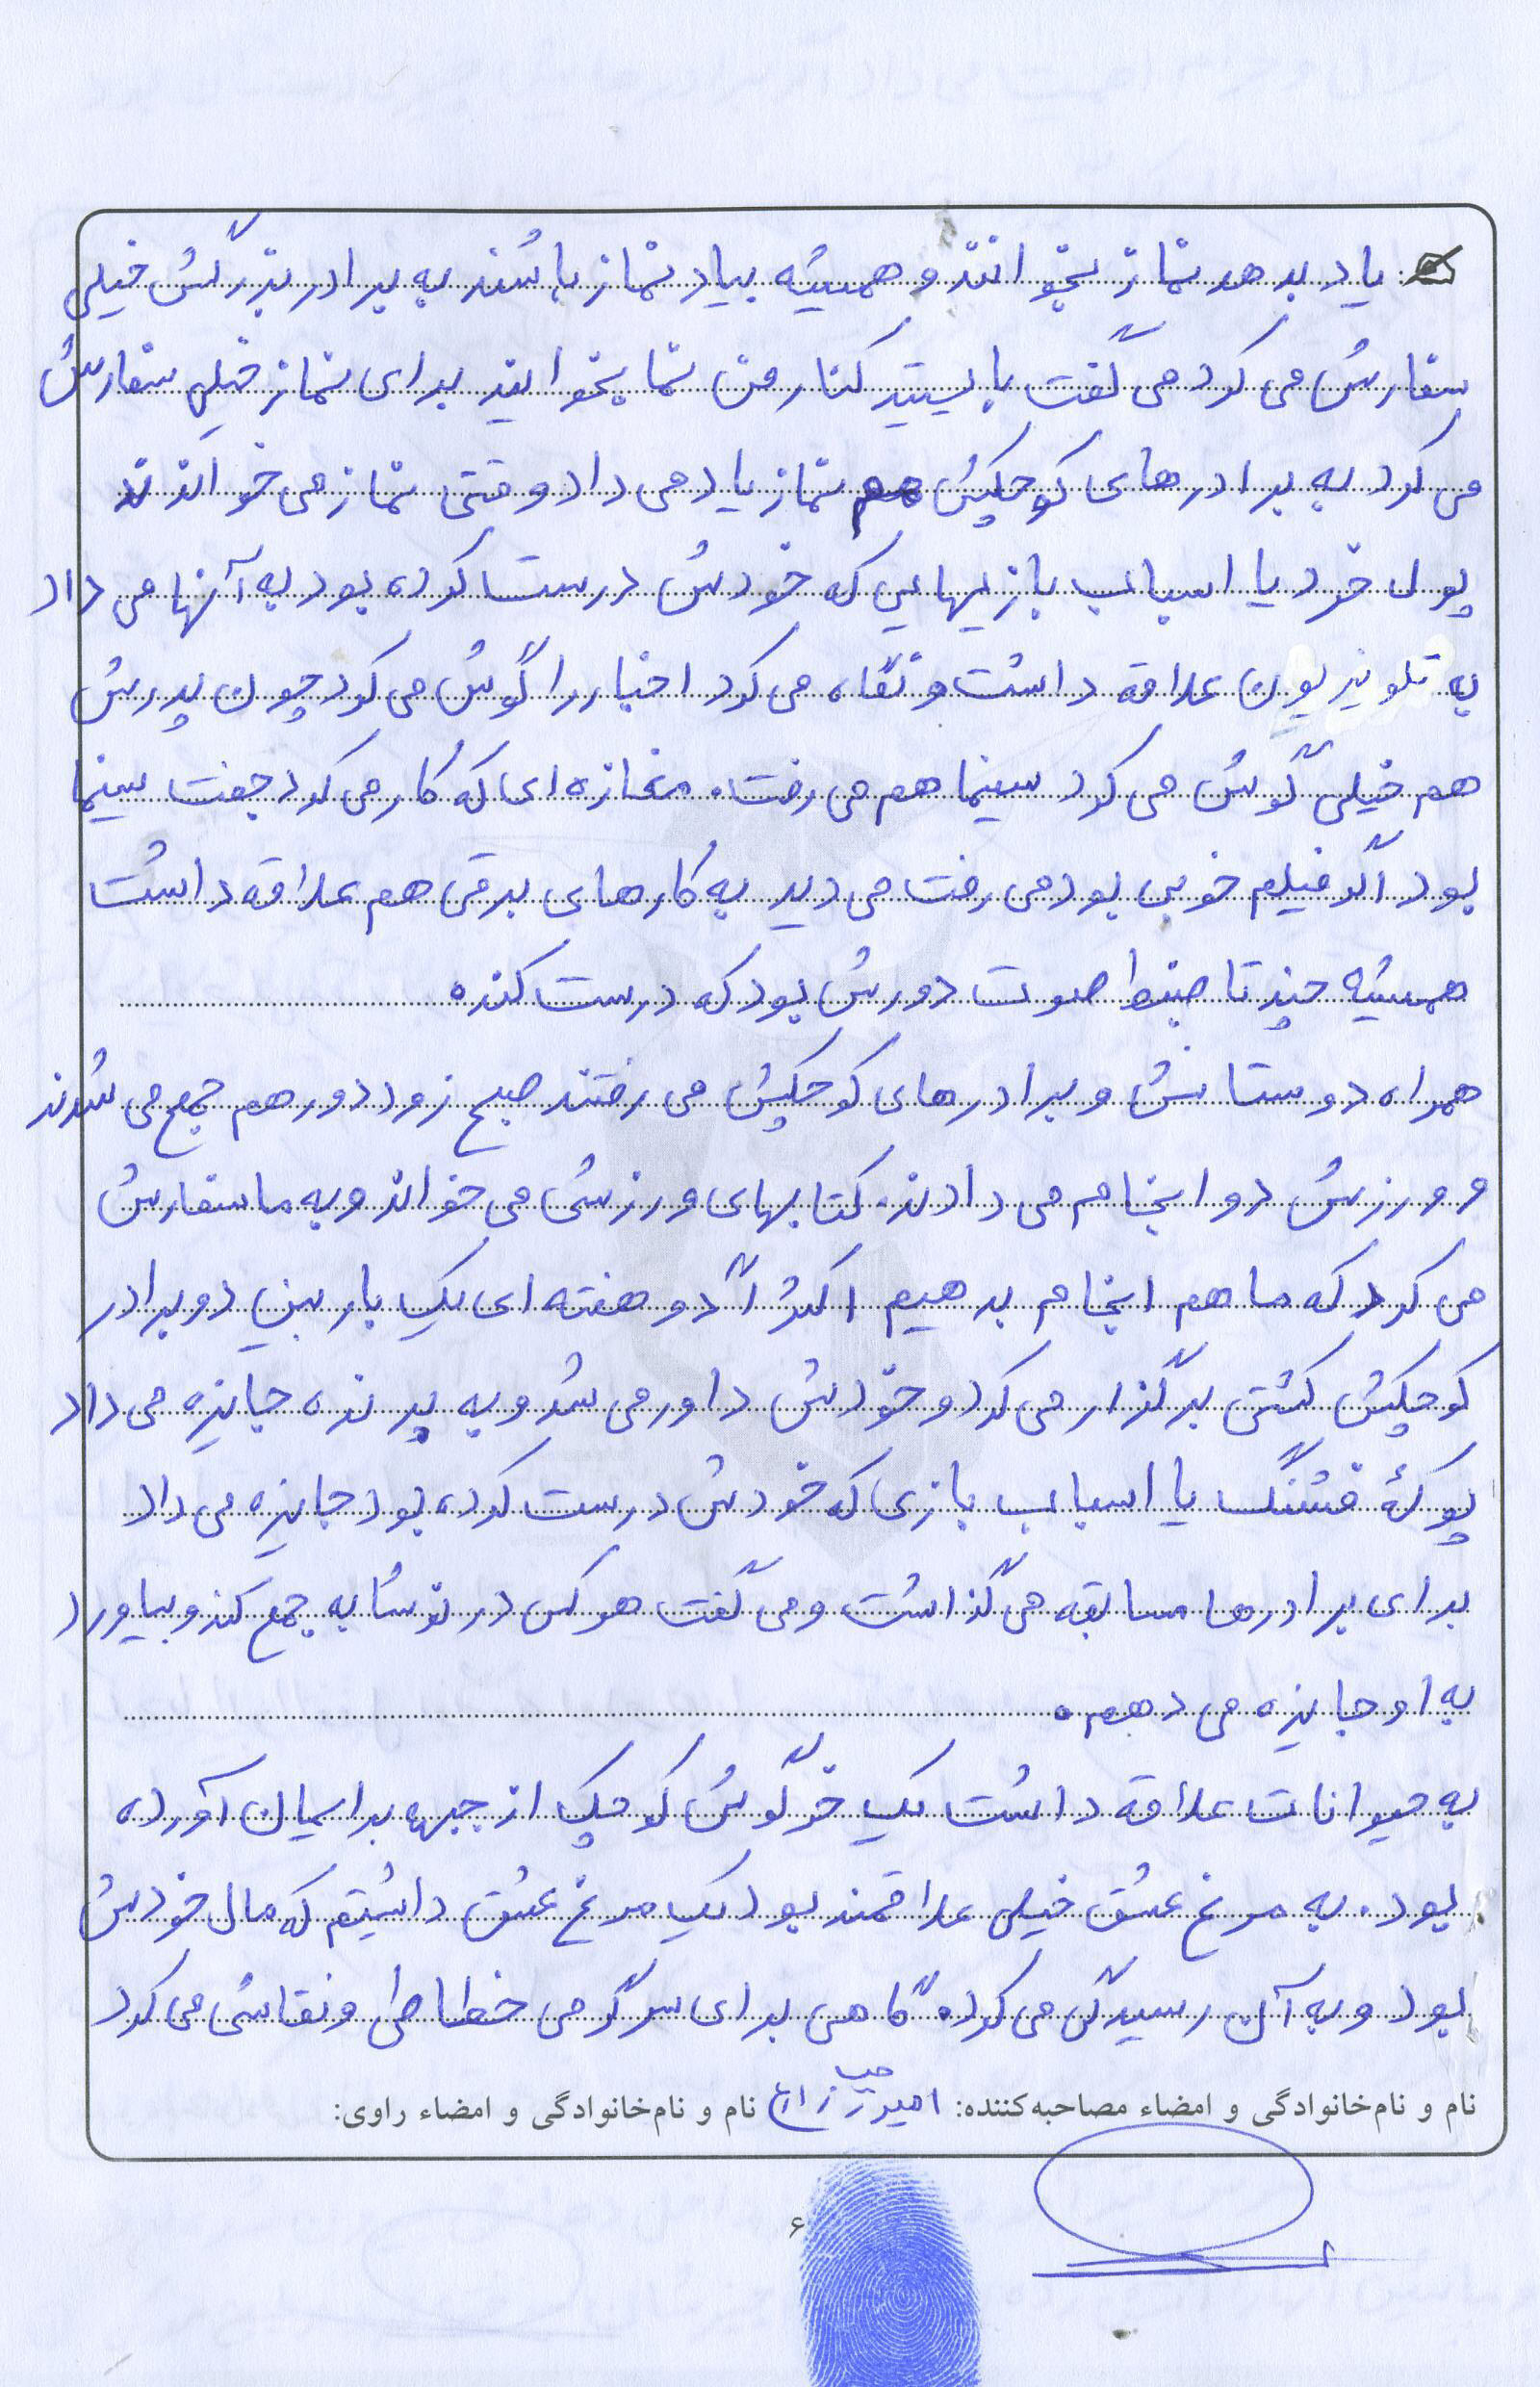 یاد بدهد نماز بخوانند و همیشه بیاد نماز باشند به برادر بزرگش خیلی
سفارش می کرد می گفت بایستید کنار من نما بخوانید برای نماز خیلی سفارش
می کرد به برادرهای کوچکش هم نماز یاد می داد وقتی نماز می خواندند
پول خرد یا اسباب بازیهایی که خودش درست کرده بود به آنها می داد
به تلویزیون علاقه داشت و نگاه می کرد اخبار را گوش می کرد چون پدرش
هم خیلی گوش می کرد سینما هم می رفت. مغازه ای که کار می کرد جفت سینما
بود اگر فیلم خوبی بود می رفت می دید به کارهای برقی هم علاقه داشت
همیشه چند تا ضبط صوت دورش بود که درست کند.
همراه دوستانش و برادرهای کوچکش می رفتند صبح زود دور هم جمع می شدند
و ورزش دو انجام می دادند. کتابهای ورزشی می خواند و به ما سفارش
می کرد که ما هم انجام بدهیم اکثراً دو هفته ای یک بار بین دو برادر
کوچکش کشتی برگذار می کرد و خودش داور می شد و به برنده جایزه می داد
پوکۀ فشنگ یا اسباب بازی که خودش درست کرده بود جایزه می داد
برای برادرها مسابقه می گذاشت و می گفت هر کس در نوشابه جمع کند و بیاورد
به او جایزه می دهم.
به حیوانات علاقه داشت یک خرگوش کوچک از جبهه برایمان آورده
بود. به مرغ عشق خیلی علاقمند بود یک مرغ عشق داشتیم که مال خودش
بود و به آن رسیدگی می کرد. گاهی برای سرگرمی خطاطی و نقاشی می کرد
نام و نام‌خانوادگی و امضاء مصاحبه‌کننده: امیر نام و نام‌خانوادگی و امضاء راوی:
۶